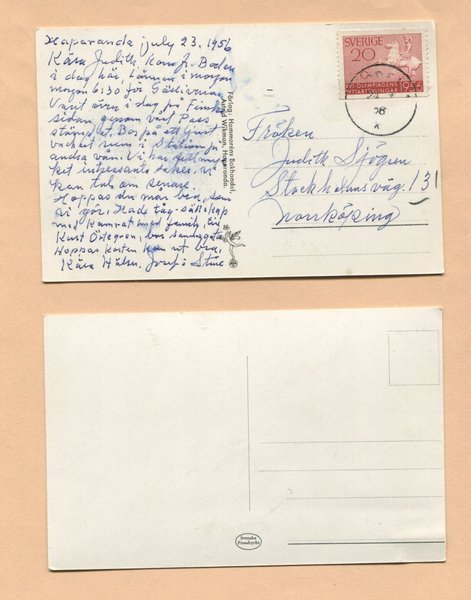 Haparanda july 23, 1956
Kära Judith kom fr. Boden
i dag här, lämnar i morgon
6:30 för Gällivare
Varit även i dag på Finska
sidan genom vårt Pass
stämplat. Bor på ett
rum i Station,
andra vån. Vi har
intressanta saker, vi
kan tala om senare.
Hoppas du mår bra, som
vi gör. Hade tåg-sällskap
med kamrat med family, 
Kurt Örtegren, bor
Hoppas korten kom ut bra.
Kära Hälsn. Josef & Sture
Förlag: Hammaréns Bokhandel,
Astrid Wikman, Haparanda.
SVERIGE
20
XVI OLYMPIADENS
RYTTARTÄVLINGAR
1956
Fröken
Judith Sjögren
Stockholmsväg. 13
Norrköping
Svenska
Pressbyrån